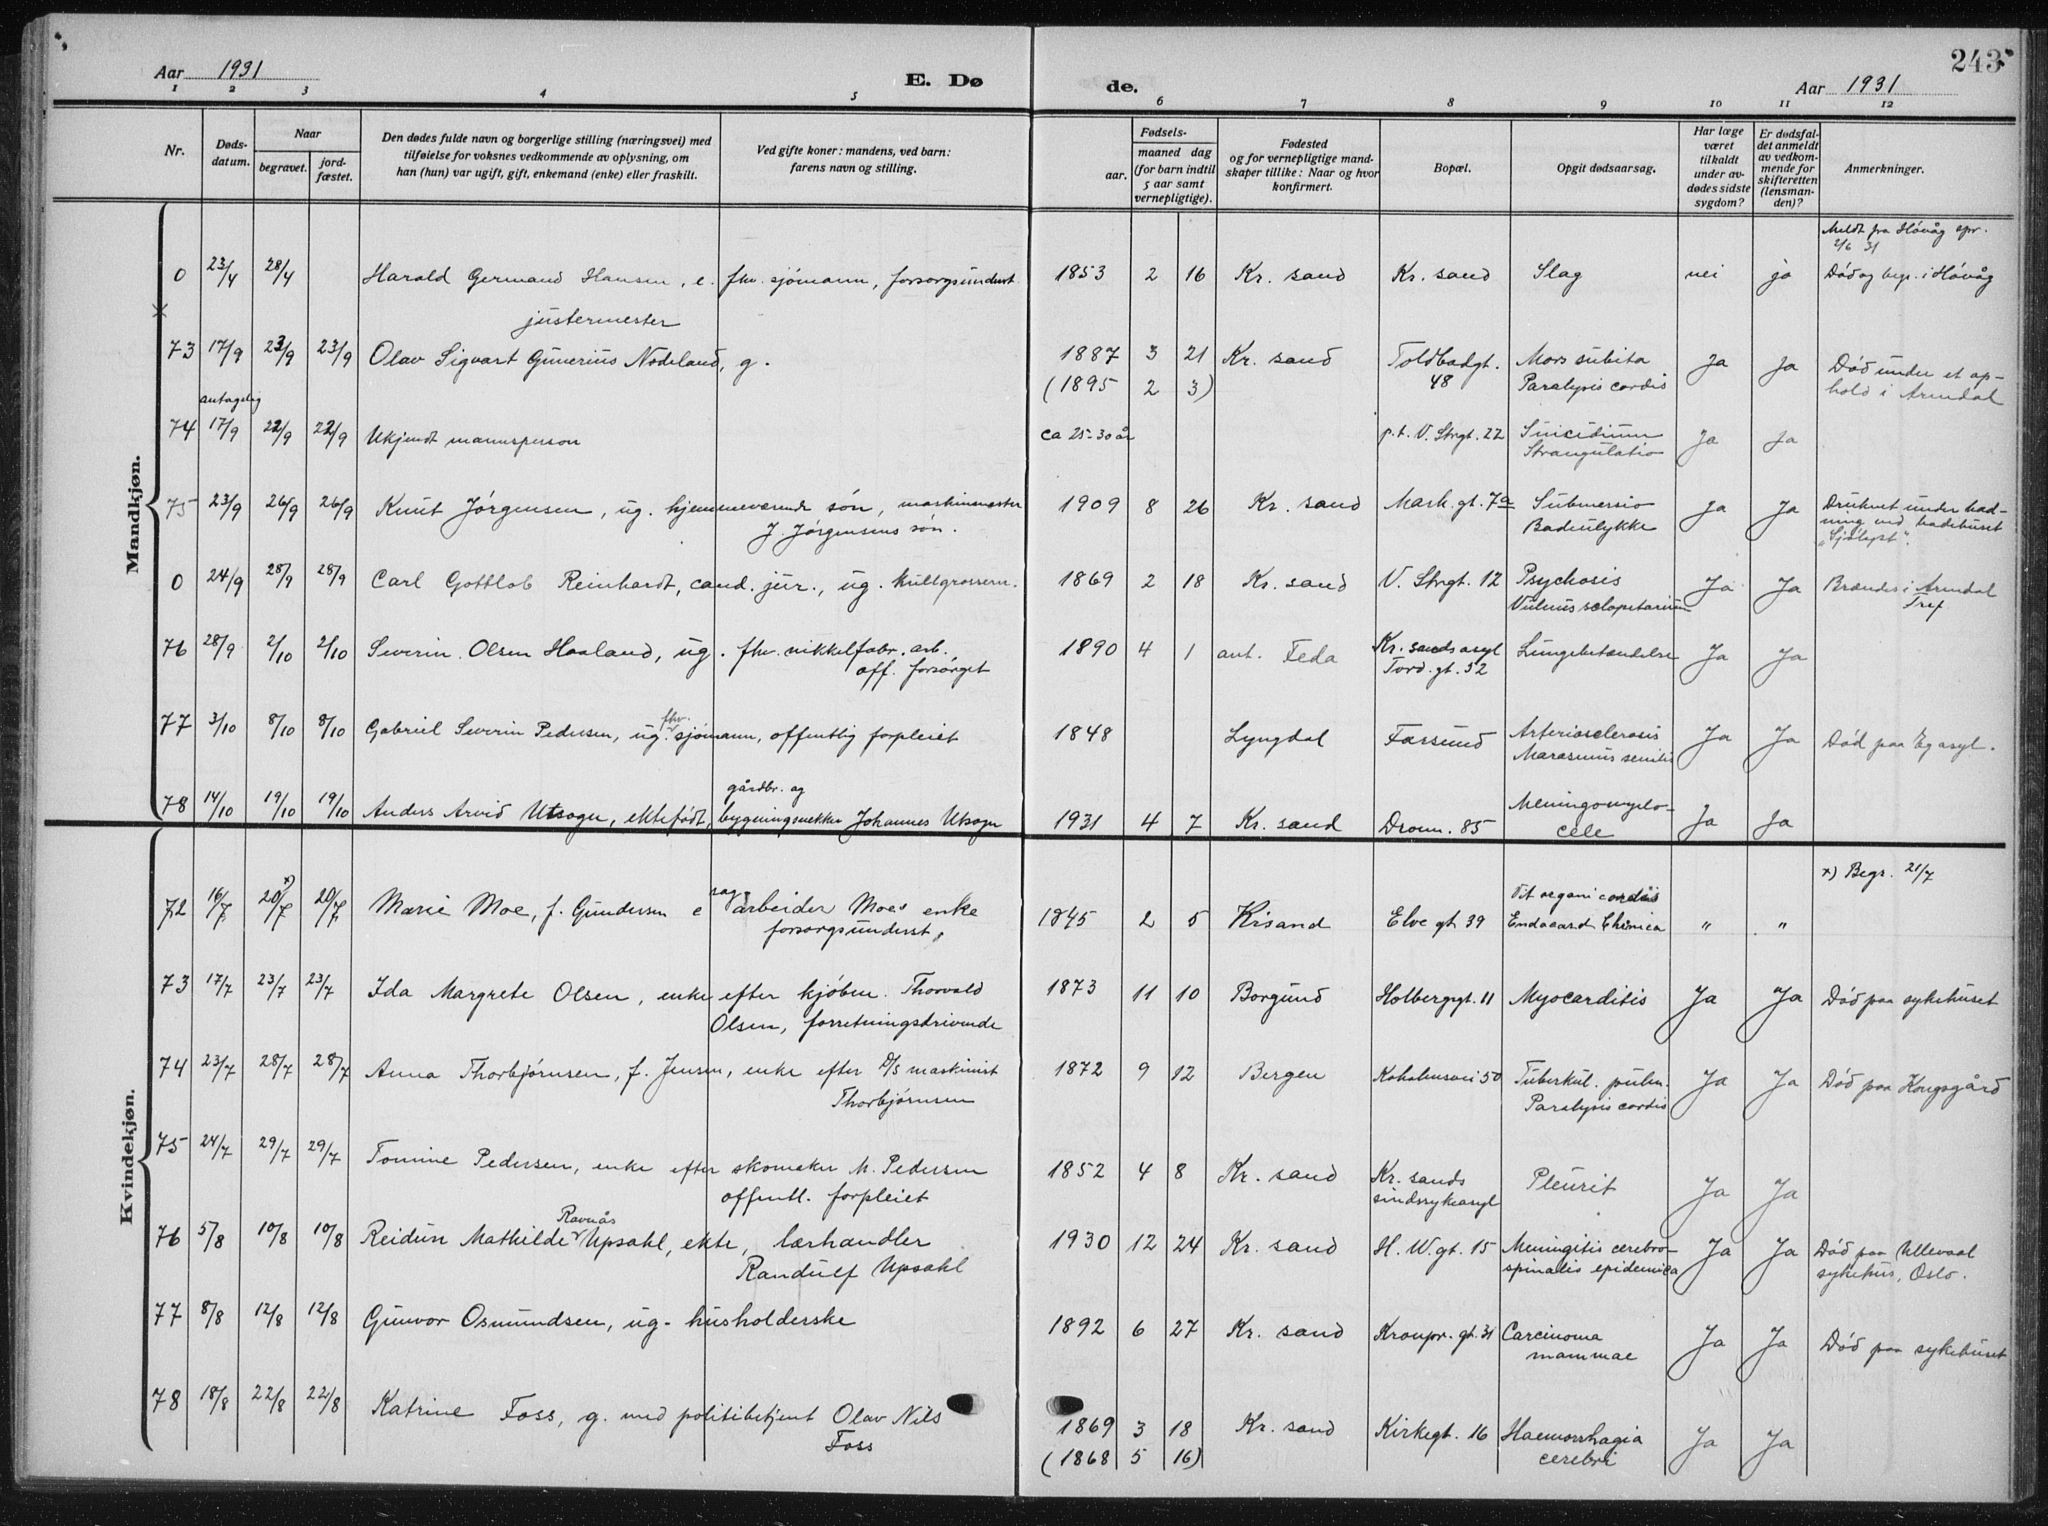 Aar 1931
E. Dø
de.
Aar 1931
243
1 2 3 4 5 6 7 8 9 10 11 12
Nr.
Døds-
datum.
Naar
begravet.
jord-
fæstet.
Den dødes fulde navn og borgerlige stilling (næringsvei) med
tilføielse for voksnes vedkommende av oplysning, om
han (hun) var ugift, gift, enkemand (enke) eller fraskilt.
Ved gifte koner: mandens, ved barn:
farens navn og stilling.
Fødsels-
aar. maaned dag
(for barn indtil
5 aar samt
vernepligtige).
Fødested
og for vernepligtige mand-
skaper tillike: Naar og hvor
konfirmert.
Bopæl.
Opgit dødsaarsag.
Har læge
været
tilkaldt
under av-
dødes sidste
sygdom?
Er dødsfal-
det anmeldt
av vedkom-
mende for
skifteretten
(lensman-
den)?
Anmerkninger.
Mandkjøn.
Meldt fra Høvåg spr.
2/6 31
0 23/4 28/4 Harald Germand Hansen, e. fhv. sjømann, forsorgsunderst. 1853 2 16 Kr. sand Kr. sand Slag nei ja Død og begr. i Høvåg
justermester
73 17/9 23/9 23/9 Olav Sigvart Gunerius Nodeland, g. 1887 3 21 Kr. sand Toldbodgt. Mors subita Ja Ja Død under et op-
(1895 2 3) 48 Paralysis cordis hold i Arendal
antagelig
74 17/9 22/9 22/9 Ukjendt mannsperson ca 25-30 år p.t. V. Strgt. 22 Suicidium Ja Ja
Strangulatio
75 23/9 26/9 26/9 Knut Jørgensen, ug. hjemmeværende søn, maskinmester 1909 8 26 Kr. sand Mark. gt. 7a Submersio Ja Ja Druknet under bad-
J. Jørgensens søn. Badeulykke ning ved badehuset
"Sjølyst".
0 24/9 28/9 28/9 Carl Gottlob Reinhardt, cand. jur., ug. kullgrosserer. 1869 2 18 Kr. sand V. Strgt. 12 Psychosis Ja Ja Brændes i Arendal
Vulnus sclopetarium
76 28/9 2/10 2/10 Severin Olsen Haaland, ug. fhv. nikkelfabr. arb. 1890 4 1 ant. Feda Kr. sands asyl Lungebetændelse Ja Ja
off. forsørget Tord. gt. 52
77 3/10 8/10 8/10 Gabriel Severin Pedersen, ug. fhv. sjømann, offentlig forpleiet 1848 Lyngdal Farsund Arteriosclerosis Ja Ja Død paa Eg asyl.
Marasmus senilis
gårdbr. og
78 14/10 19/10 19/10 Anders Arvid Utsogn, ektefødt, bygningssnekker Johannes Utsogn 1931 4 7 Kr. sand Dronn. 85 Meningomyelo- Ja Ja
cele
Kvindekjøn.
x) Begr. 21/7
72 16/7 20/7 x) 20/7 Marie Moe, f. Gundersen e sagarbeider Moes enke 1845 2 5 Krsand Elve gt 39 Vit organi cordis " "
forsorgsunderst. Endocard Chronica
73 17/7 23/7 23/7 Ida Margrete Olsen, enke efter kjøbm. Thorvald 1873 11 10 Borgund Holbergsgt. 11 Myocarditis Ja Ja Død paa sykehuset
Olsen, forretningsdrivende
74 23/7 28/7 28/7 Anna Thorbjørnsen, f. Jensen, enke efter D/S maskinist 1872 9 12 Bergen Koholmsvei 50 Tuberkul. pulm. Ja Ja Død paa Kongsgård
Thorbjørnsen Paralysis cordis
75 24/7 29/7 29/7 Tomine Pedersen, enke efter skomaker M. Pedersen 1852 4 8 Kr. sand Kr. sands Pleurit Ja Ja
offentl. forpleiet sindssykeasyl
Ravnås
76 5/8 10/8 10/8 Reidun Mathilde Upsahl, ekte, lærhandler 1930 12 24 Kr. sand H. W. gt. 15 Meningitis cerebro- Ja Ja Død paa Ullevaal
Randulf Upsahl spinalis epidemica sykehus, Oslo.
77 8/8 12/8 12/8 Gunvor Osmundsen, ug. husholderske 1892 6 27 Kr. sand Kronpr. gt. 31 Carcinoma Ja Ja Død paa sykehuset
mammae
78 18/8 22/8 22/8 Katrine Foss, g. med politibetjent Olav Nils 1869 3 18 Kr. sand Kirkegt. 16 Haemorrhagia Ja Ja
Foss (1868 5 16) cerebri